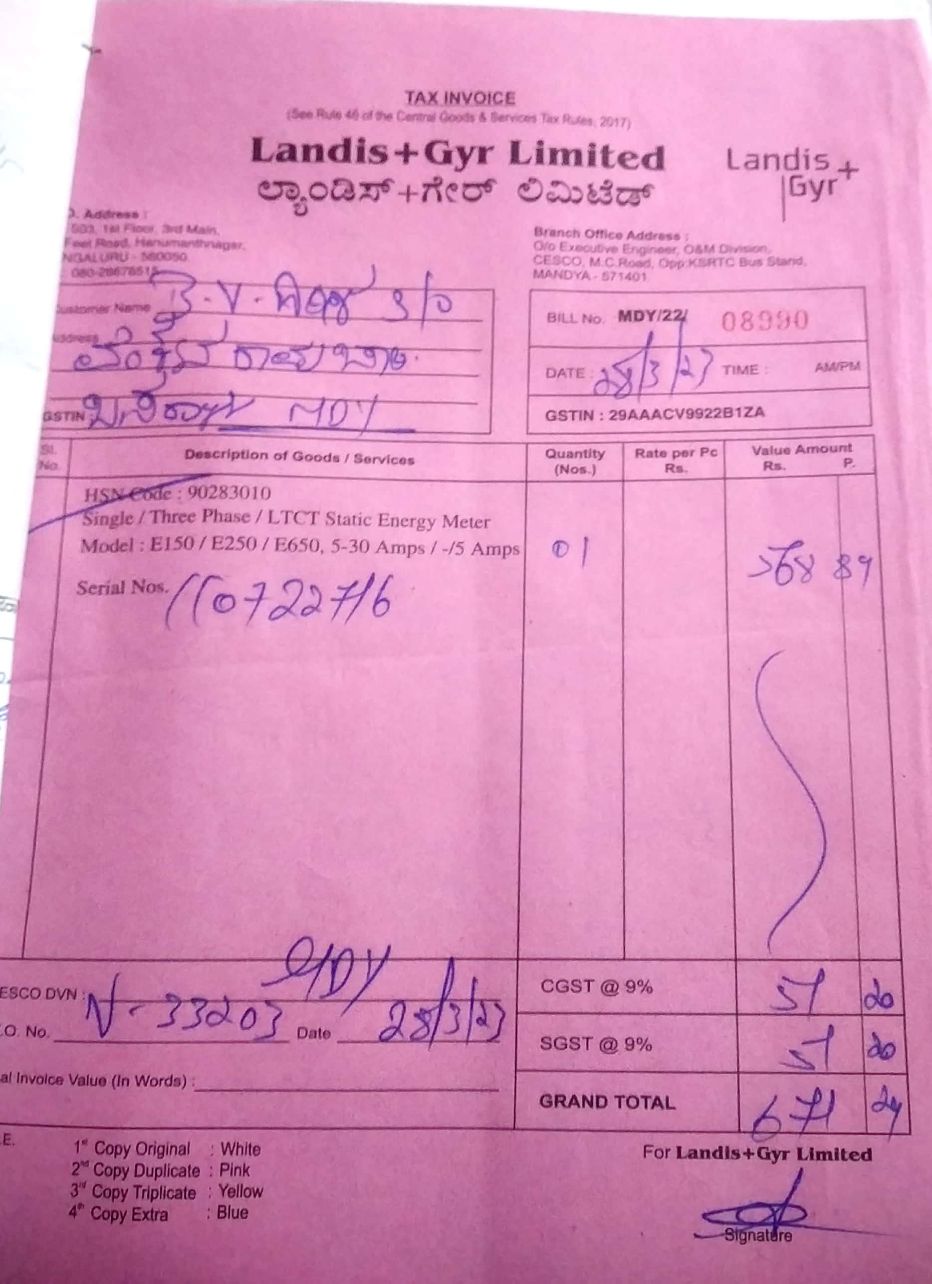 TAX INVOICE
(See Rule 46 of the Central Goods & Services Tax Rules, 2017)
Landis+Gyr Limited
ಲ್ಯಾಂಡಿಸ್+ಗೇರ್ ಲಿಮಿಟೆಡ್
Landis+
Gyr
. Address :
503, 1st Floor, 3rd Main,
Feet Road, Hanumanthnagar,
NGALURU - 560050
Branch Office Address :
O/o Executive Engineer, O&M Division,
CESCO, M.C.Road, Opp:KSRTC Bus Stand,
MANDYA - 571401
ustomer Name B.V. S/o
ddress
GSTIN MDY
BILL No. MDY/22/ 08990
DATE : 28/3/23 TIME : AM/PM
GSTIN : 29AAACV9922B1ZA
Sl. No. Description of Goods / Services Quantity (Nos.) Rate per Pc Rs. Value Amount Rs. P.
HSN Code : 90283010
Single / Three Phase / LTCT Static Energy Meter
Model : E150 / E250 / E650, 5-30 Amps / -/5 Amps 01 568 89
Serial Nos. 11072276
ESCO DVN : MDY
.O. No. N-33203 Date 28/3/23
al Invoice Value (In Words) :
CGST @ 9% 51 20
SGST @ 9% 51 20
GRAND TOTAL 671 29
.E. 1st Copy Original : White
2nd Copy Duplicate : Pink
3rd Copy Triplicate : Yellow
4th Copy Extra : Blue
For Landis+Gyr Limited
Signature